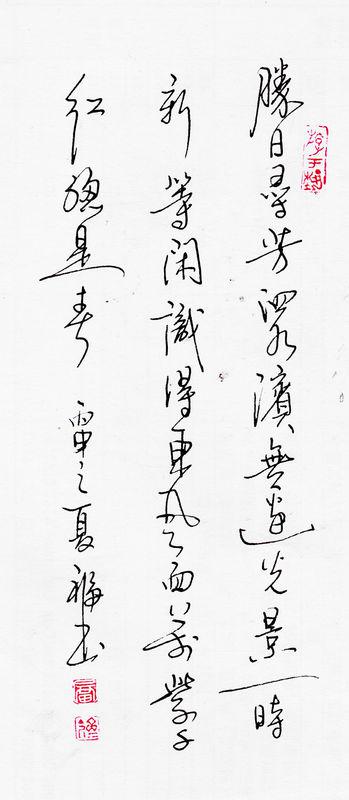 勝日尋芳泗水濱無邊光景一時
新等閑識得東風面萬紫千
紅總是春 丙申之夏福书